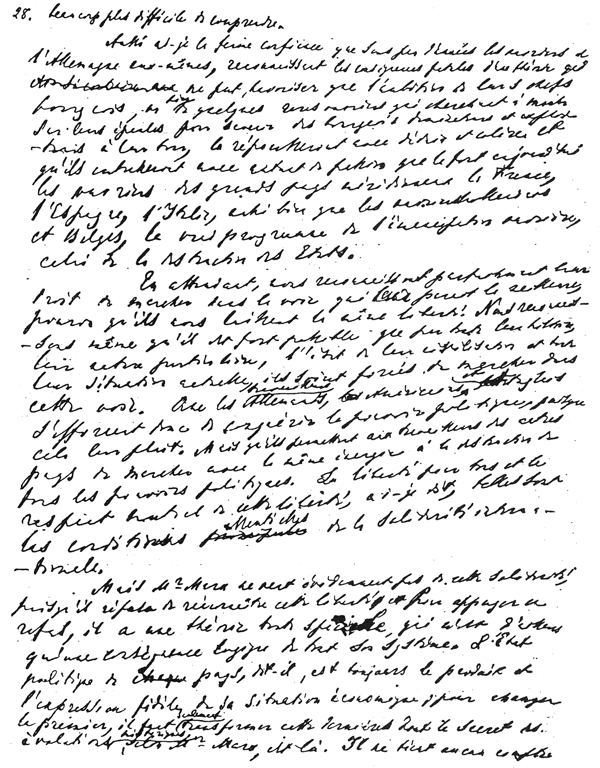 28. beaucoup plus difficile de comprendre.
Aussi ai-je la ferme confiance que sous peu d'années les ouvriers de
l'Allemagne eux-mêmes, reconnaissant les conséquences fatales d'une théorie qui
ne peut favoriser que l'ambition de leurs chefs
bourgeois, ou bien de quelques ouvriers qui cherchent à monter
sur leurs épaules pour devenir des bourgeois dominateurs et exploi-
-teurs à leur tour, la repousseront avec dédain et colère et
qu'ils embrasseront avec autant de passion que le font aujourd'hui
les ouvriers des grands pays méridionaux, la France,
l'Espagne, l'Italie, aussi bien que les ouvriers
et Belges, le vrai programme de l'émancipation ouvrière,
celui de la destruction des Etats.
En attendant, nous reconnaissons parfaitement leur
droit de marcher dans la voie qui leur paraît la meilleure,
pourvu qu'ils nous laissent la même liberté. Nous reconnais-
-sons même qu'il est fort possible que par toute leur histoire,
leur nature particulière, l'état de leur civilisation et toute
leur situation actuelle, ils soient forcés de marcher dans
cette voie. Que les travailleurs Allemands, Américains et Anglais
s'efforcent donc de conquérir le pouvoir politique, puisque
cela leur plaît. Mais qu'ils permettent aux travailleurs des autres
pays de marcher avec la même énergie à la destruction de
tous les pouvoirs politiques. La liberté pour tous et le
respect mutuel de cette liberté, ai-je dit, telles sont
les conditions essentielles de la solidarité interna-
-tionale.
Mais Mr. Marx ne veut évidemment pas de cette solidarité,
puisqu'il refuse de reconnaître cette liberté. Pour appuyer ce
refus, il a une théorie toute spéciale, qui n'est d'ailleurs
qu'une conséquence logique de tout son système. L'Etat
politique de chaque pays, dit-il, est toujours le produit et
l'expression fidèle de sa situation économique; pour changer
le premier, il faut seulement transformer cette dernière. Tout le secret des
évolutions historiques, selon Mr. Marx, est là. Il ne tient aucun compte